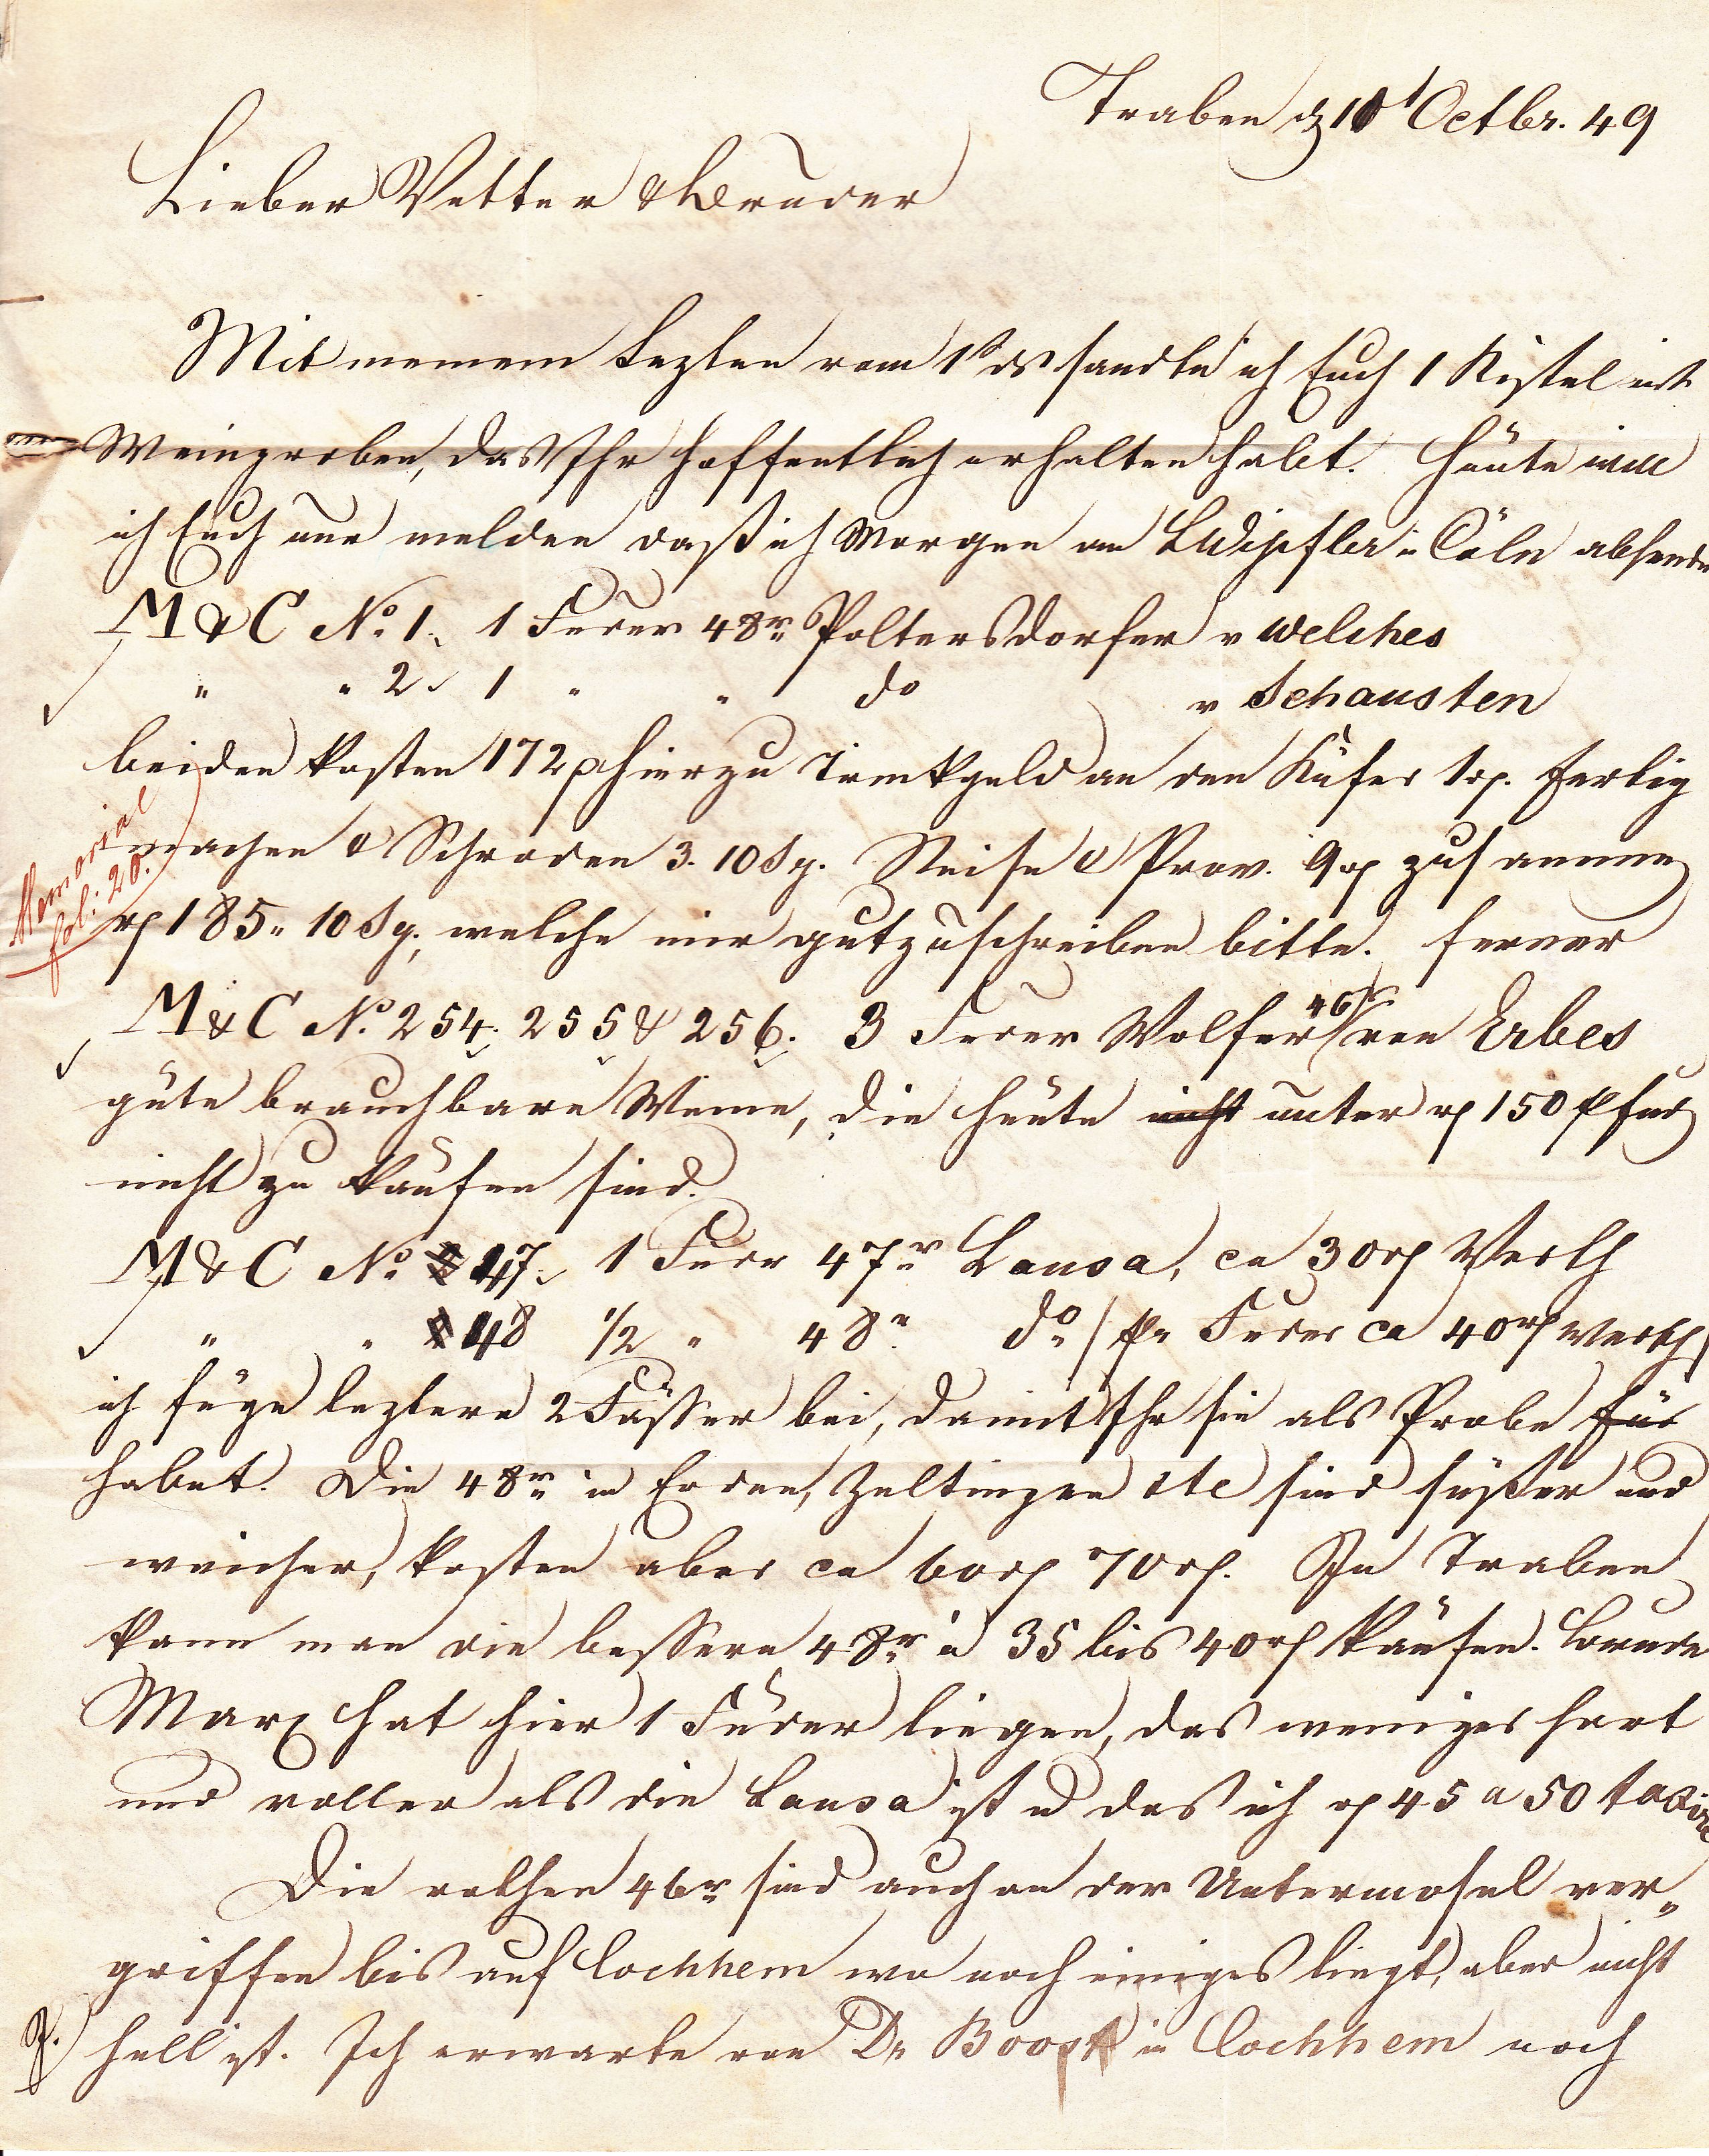 Traben d 10 Octbr. 49
Lieber Vetter & Bruder
Mit meinem Lezten vom 1t ds sandte ich Euch 1 Kistel mit
Weinproben, das Ihr hoffentlich erhalten habt. Heute will
ich Euch nur melden daß ich Morgen an in Cöln absende
M & C No. 1. 1 Fuder 48r Poltersdorfer v Welches
" " 2 1 " " do v Schausten
beiden kosten 172 hierzu Trinkgeld an den Küfer 1 rp. fertig
machen & Schroden 3. 10 Sg. Reise & Prov. 9 rp zusammen
rp 185. 10 Sg. welche mir gutzuschreiben bitte. ferner
Memorial
fol: 20.
M & C No. 254. 255 & 256. 3 Fuder Wolfer 46r von Erbes
gute brauchbare Weine, die heute nicht unter rp 150 p fuder
nicht zu kaufen sind.
M & C No. 47. 1 Fudr 47r Lausa, ca 30 rp Werth
" " 48 1/2 " 48r do / pr Fuder ca 40 rp Werth /
ich füge leztere 2 Fässer bei, damit Ihr sie als Probe für
habet. Die 48r in Erden, Zeltingen etc sind süßer und
weicher, kosten aber ca 60 rp 70 rp. In Traben
kann man die bessern 48r a 35 bis 40 rp kaufen. Bruder
Marx hat hier 1 Fuder liegen, das weniger hart
und voller als die Lausa ist u das ich rp 45 a 50 taxire
Die rothen 46r sind auch an der Untermosel ver„
griffen bis auf Cochhem wo noch einiges liegt, aber nicht
hell ist. Ich erwarte von Dr Boost in Cochhem noch